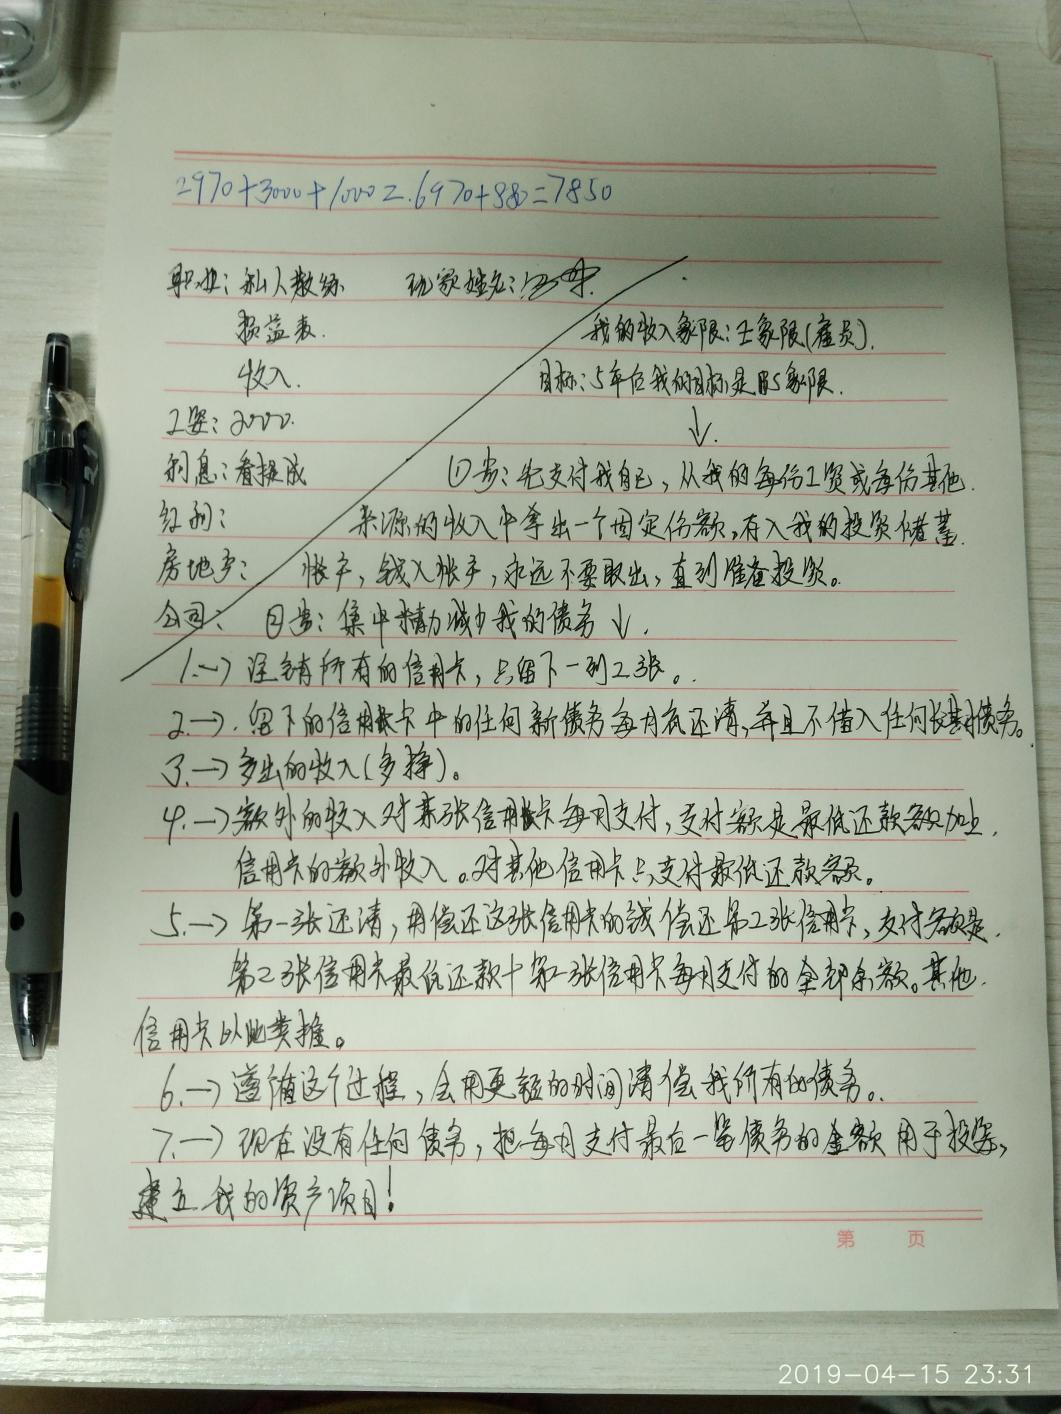 2970+3000+1000=6970+880=7850
职业:私人教练 玩家姓名:
损益表.
我的收入象限:E象限(雇员).
收入.
目标:5年后我的目标是BS象限.
工资:2000.
↓.
利息:看提成
①步:先支付我自己,从我的每份工资或每份其他
红利:
来源的收入中拿出一个固定份额,存入我的投资储蓄
房地产:
帐户,钱入帐户,永远不要取出,直到准备投资。
公司:
②步:集中精力减少我的债务↓.
1.→注销所有的信用卡,只留下一到2张。
2.→.留下的信用卡中的任何新债务每月底还清,并且不借入任何长期债务。
3.→多出的收入(多挣)。
4.→额外的收入对某张信用卡每月支付,支付额是最低还款额加上
信用卡的额外收入。对其他信用卡只支付最低还款额。
5.→第一张还清,用偿还这张信用卡的钱偿还第2张信用卡,支付额是
第2张信用卡最低还款+第一张信用卡每月支付的全部余额。其他
信用卡以此类推。
6.→遵循这个过程,会用更短的时间清偿我所有的债务。
7.→现在没有任何债务,把每月支付最后一笔债务的金额用于投资,
建立我的资产项目!
第 页
2019-04-15 23:31